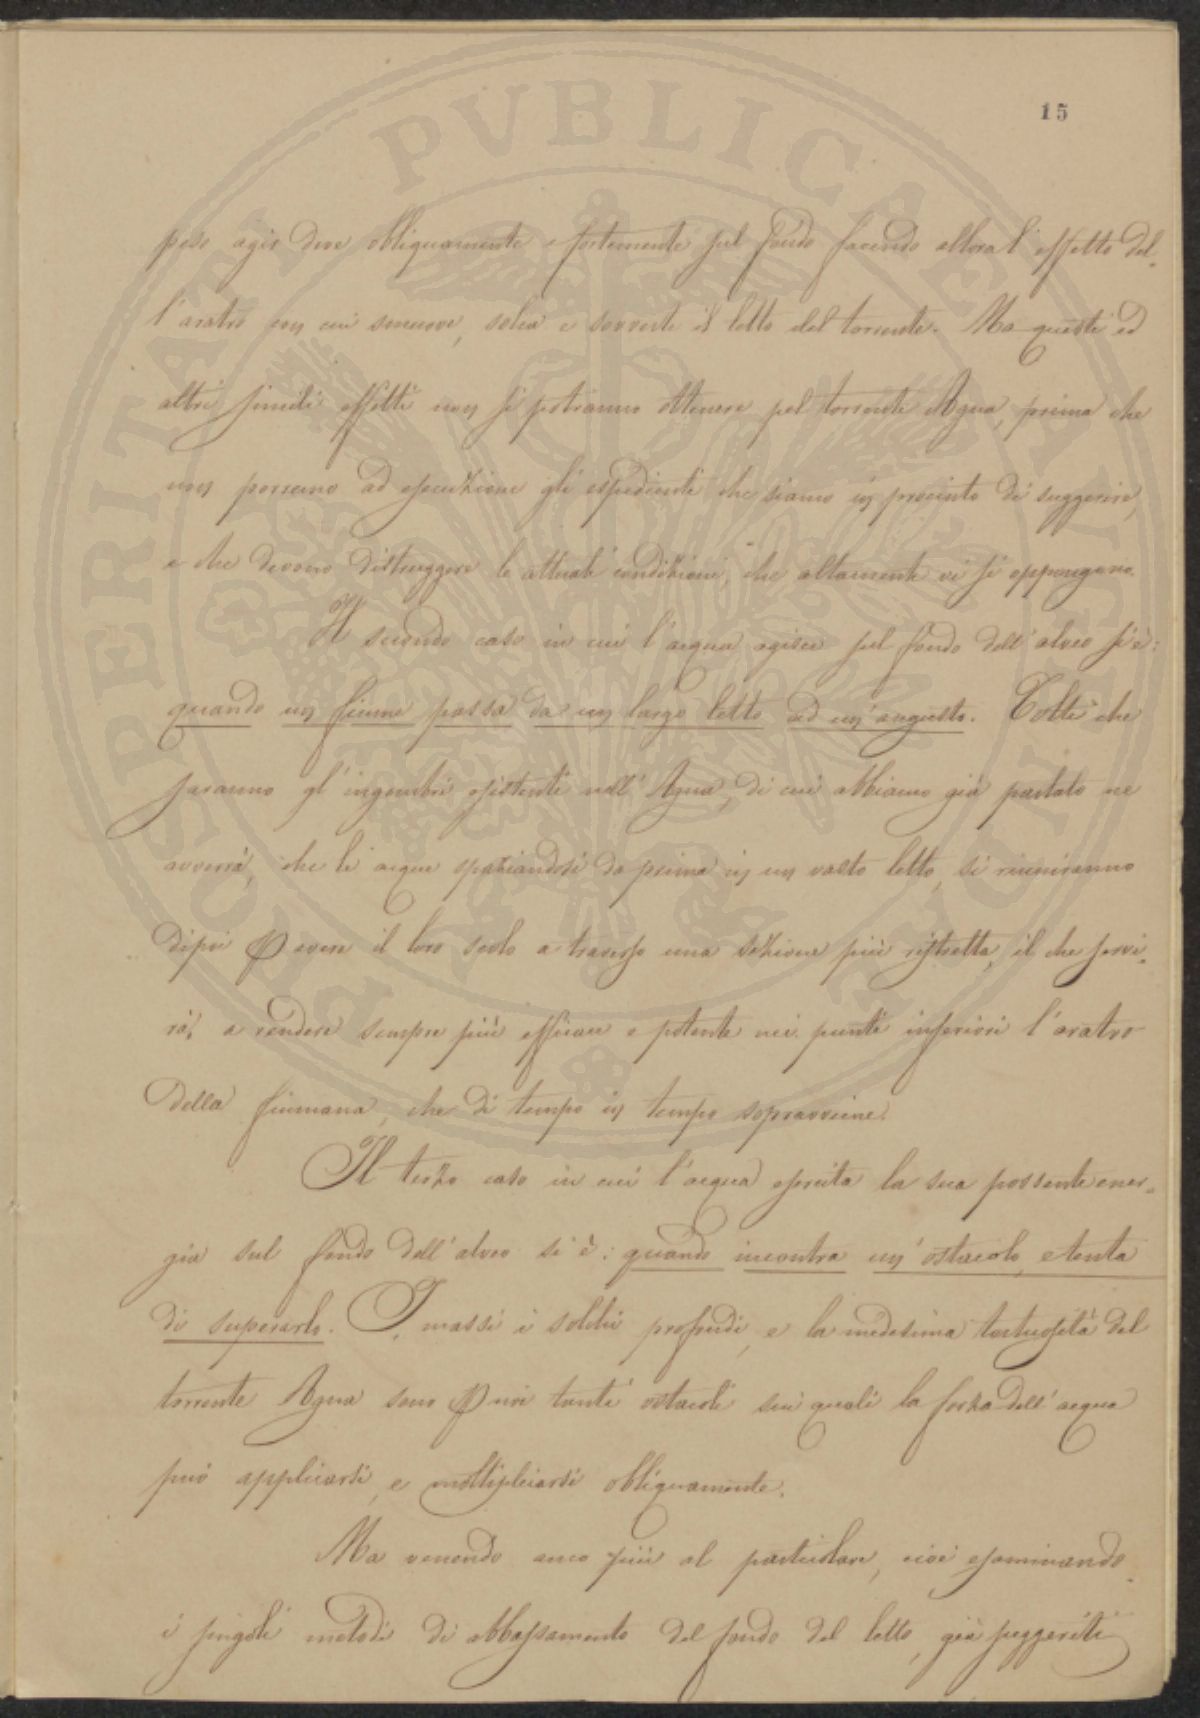 15
peso agir deve obliquamente e fortemente sul fondo facendo allora l'effetto del=
l'aratro con cui smuove, solca e sovverte il letto del torrente. Ma questi ed
altri simili effetti non si potranno ottenere pel torrente Agna, prima che
non pervano ad esecuzione gli espedienti che siamo in procinto di suggerire,
e che devono distruggere le attuali condizioni, che altamente vi si oppongono.
Il secondo caso in cui l'acqua agisce sul fondo dell'alveo si è:
quando un fiume passa da un largo letto ad un'angusto. Tolti che
saranno gl'ingombri esistenti nell'Agna, di cui abbiamo già parlato ne
avverrà, che le acque spaziandosi da prima in un vasto letto, si riuniranno
dipoi p avere il loro scolo a traverso una sezione più ristretta, il che servi=
rà, a rendere sempre più efficace e potente nei punti inferiori l'aratro
della fiumana, che di tempo in tempo sopravviene.
Il terzo caso in cui l'acqua esercita la sua possente ener=
gia sul fondo dell'alveo si è: quando incontra un'ostacolo, e tenta
di superarlo. I massi i solchi profondi, e la medesima tortuosità del
torrente Agna sono p noi tanti ostacoli sui quali la forza dell'acqua
può applicarsi, e moltiplicarsi obliquamente.
Ma venendo anco più al particolare, cioè esaminando
i singoli metodi di abbassamento del fondo del letto, già suggeriti